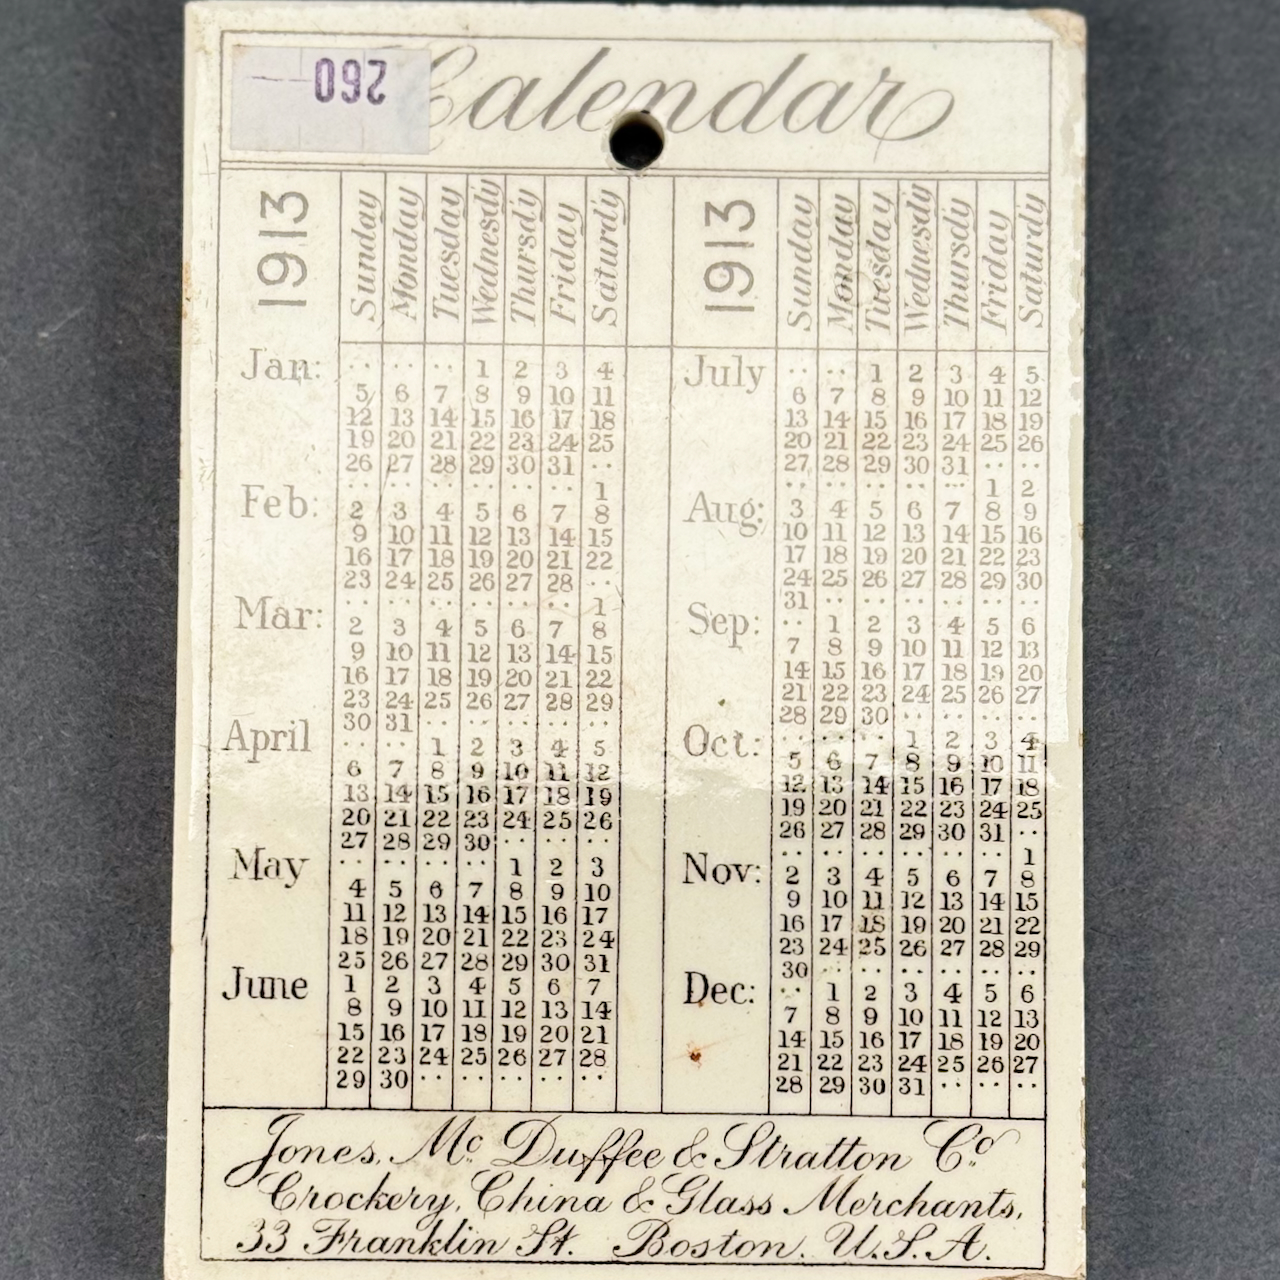 260
Calendar
1913 Sunday Monday Tuesday Wednesd'y Thursd'y Friday Saturd'y
Jan: .. .. .. 1 2 3 4
5 6 7 8 9 10 11
12 13 14 15 16 17 18
19 20 21 22 23 24 25
26 27 28 29 30 31 ..
Feb: .. .. .. .. .. .. 1
2 3 4 5 6 7 8
9 10 11 12 13 14 15
16 17 18 19 20 21 22
23 24 25 26 27 28 ..
Mar: .. .. .. .. .. .. 1
2 3 4 5 6 7 8
9 10 11 12 13 14 15
16 17 18 19 20 21 22
23 24 25 26 27 28 29
30 31 .. .. .. .. ..
April .. .. 1 2 3 4 5
6 7 8 9 10 11 12
13 14 15 16 17 18 19
20 21 22 23 24 25 26
27 28 29 30 .. .. ..
May .. .. .. .. 1 2 3
4 5 6 7 8 9 10
11 12 13 14 15 16 17
18 19 20 21 22 23 24
25 26 27 28 29 30 31
June 1 2 3 4 5 6 7
8 9 10 11 12 13 14
15 16 17 18 19 20 21
22 23 24 25 26 27 28
29 30 .. .. .. .. ..
1913 Sunday Monday Tuesday Wednesd'y Thursd'y Friday Saturd'y
July .. .. 1 2 3 4 5
6 7 8 9 10 11 12
13 14 15 16 17 18 19
20 21 22 23 24 25 26
27 28 29 30 31 .. ..
Aug: .. .. .. .. .. 1 2
3 4 5 6 7 8 9
10 11 12 13 14 15 16
17 18 19 20 21 22 23
24 25 26 27 28 29 30
31 .. .. .. .. .. ..
Sep: .. 1 2 3 4 5 6
7 8 9 10 11 12 13
14 15 16 17 18 19 20
21 22 23 24 25 26 27
28 29 30 .. .. .. ..
Oct: .. .. .. 1 2 3 4
5 6 7 8 9 10 11
12 13 14 15 16 17 18
19 20 21 22 23 24 25
26 27 28 29 30 31 ..
Nov: .. .. .. .. .. .. 1
2 3 4 5 6 7 8
9 10 11 12 13 14 15
16 17 18 19 20 21 22
23 24 25 26 27 28 29
30 .. .. .. .. .. ..
Dec: .. 1 2 3 4 5 6
7 8 9 10 11 12 13
14 15 16 17 18 19 20
21 22 23 24 25 26 27
28 29 30 31 .. .. ..
Jones, Mc Duffee & Stratton Co.
Crockery, China & Glass Merchants,
33 Franklin St. Boston. U.S.A.